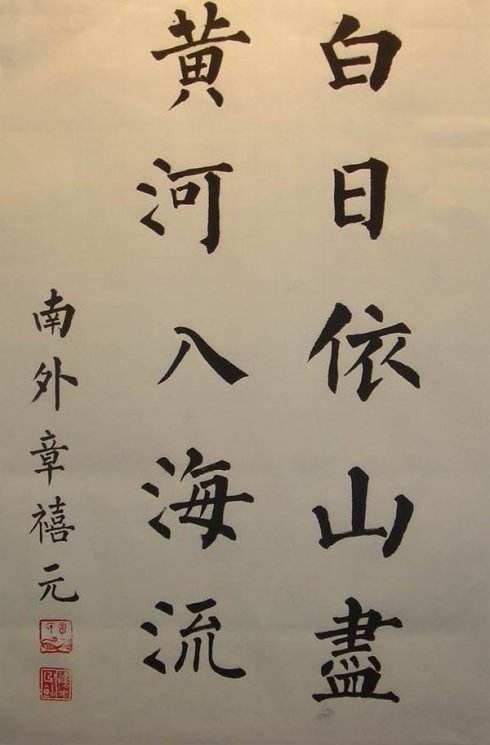 白日依山盡
黄河八海流
南外章禧元